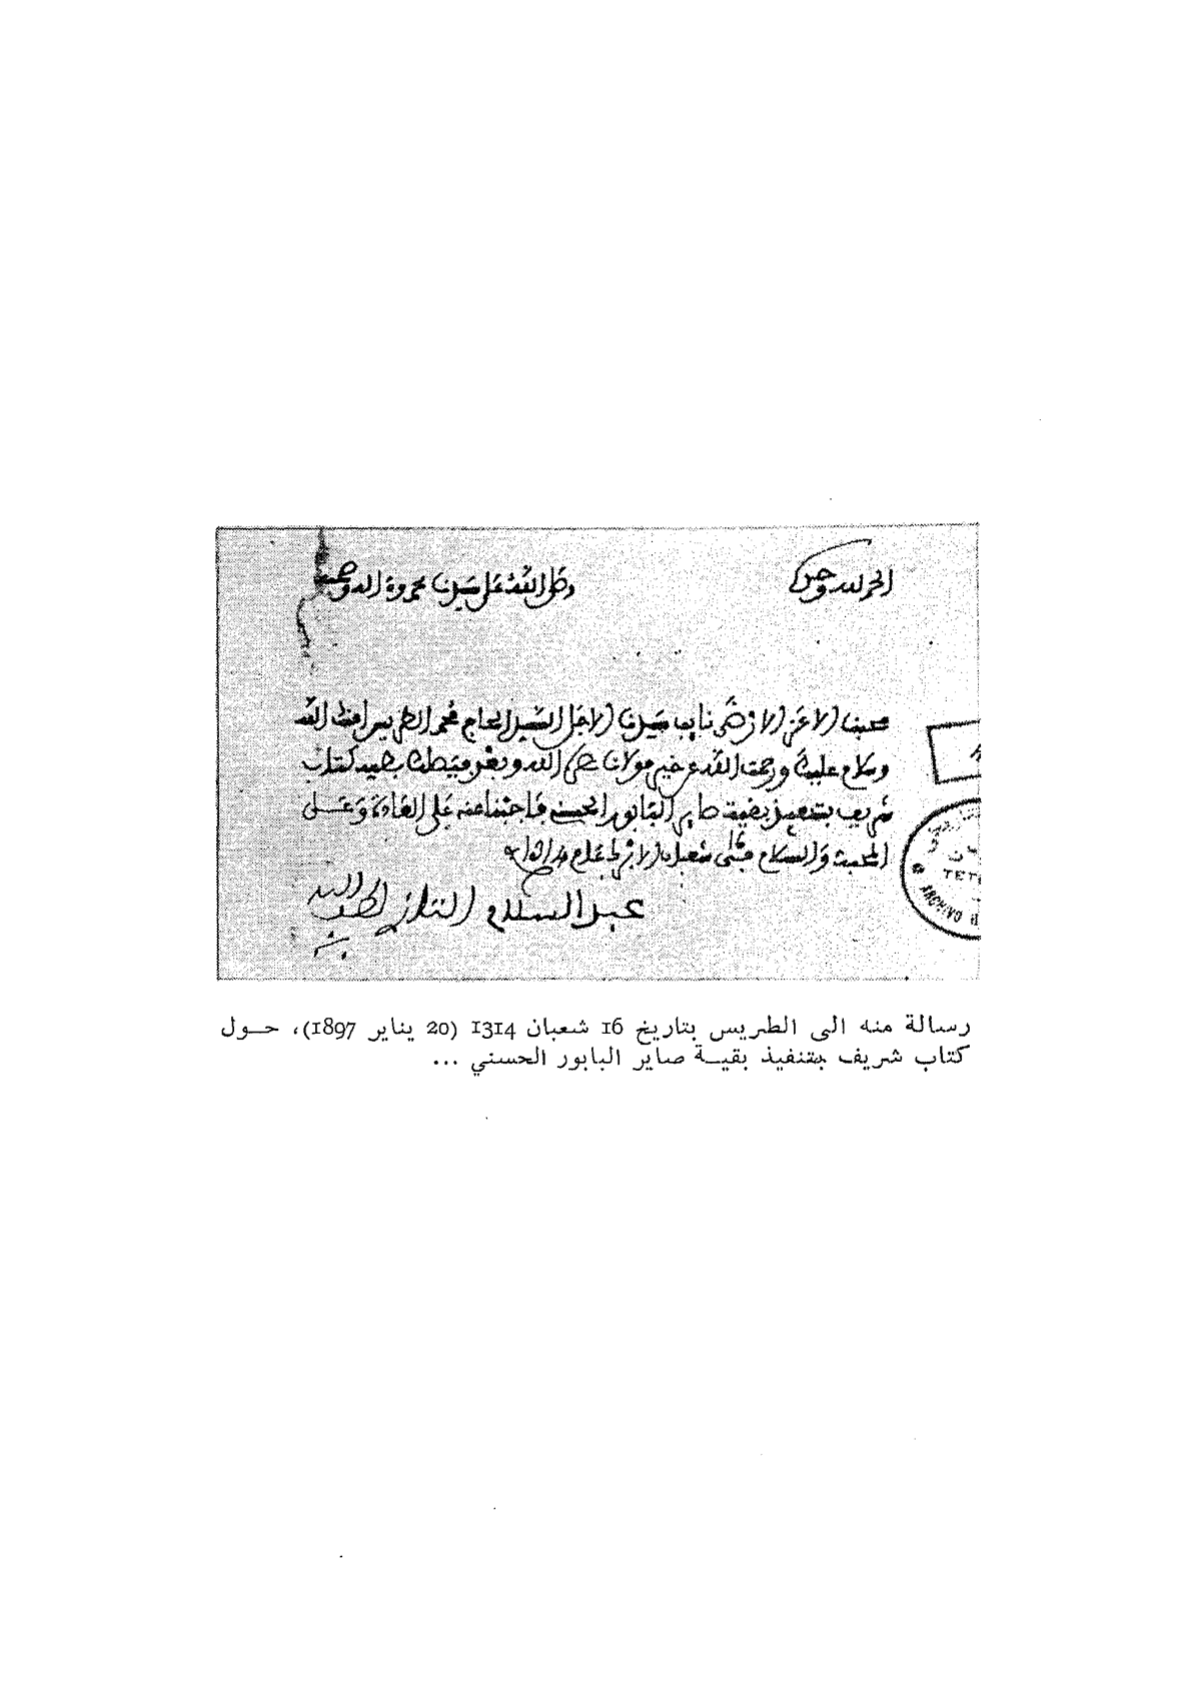 الحمد لله وحده
وصلى الله على سيدنا محمد وءاله وصحبه
محبنا الاعز الارضى نايب سيدنا الاجل السيد الحاج محمد الطريس امنك الله
وسلام عليك ورحمت الله عن خير مولانا نصره الله وبعد فيصلك بصيبه كتاب
شريف بتنفيذ بقية صاير البابور الحسني فاجبنا عنه على العادة وعلى
المحبة والسلام في شعبان الابرك عام
عبد السلام التازي لطف الله
به
TET
ARCHIVO
رسالة منه الى الطريس بتاريخ 16 شعبان 1314 (20 يناير 1897)، حـــول
كتاب شريف بتنفيذ بقيـــة صاير البابور الحسني ...